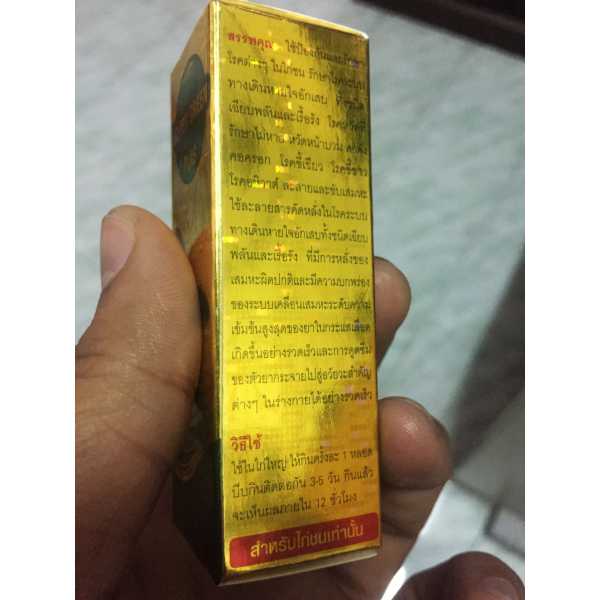 สรรพคุณ ใช้ป้องกันและรักษา
โรคต่างๆ ในไก่ชน รักษาโรคระบบ
ทางเดินหายใจอักเสบ
เฉียบพลันและเรื้อรัง โรคหวัดที่
รักษาไม่หาย หวัดหน้าบวม
คอครอก โรคขี้เขียว โรคขี้ขาว
โรคอหิวาต์ ละลายและขับเสมหะ
ใช้ละลายสารคัดหลั่งในโรคระบบ
ทางเดินหายใจอักเสบทั้งชนิดเฉียบ
พลันและเรื้อรัง ที่มีการหลั่งของ
เสมหะผิดปกติและมีความบกพร่อง
ของระบบเคลื่อนเสมหะระดับความ
เข้มข้นสูงสุดของยาในกระแสเลือด
เกิดขึ้นอย่างรวดเร็วและการดูดซึม
ของตัวยากระจายไปสู่อวัยวะสำคัญ
ต่างๆ ในร่างกายได้อย่างรวดเร็ว
วิธีใช้
ใช้ในไก่ใหญ่ ให้กินครั้งละ 1 หลอด
บีบกินติดต่อกัน 3-5 วัน กินแล้ว
จะเห็นผลภายใน 12 ชั่วโมง
สำหรับไก่ชนเท่านั้น